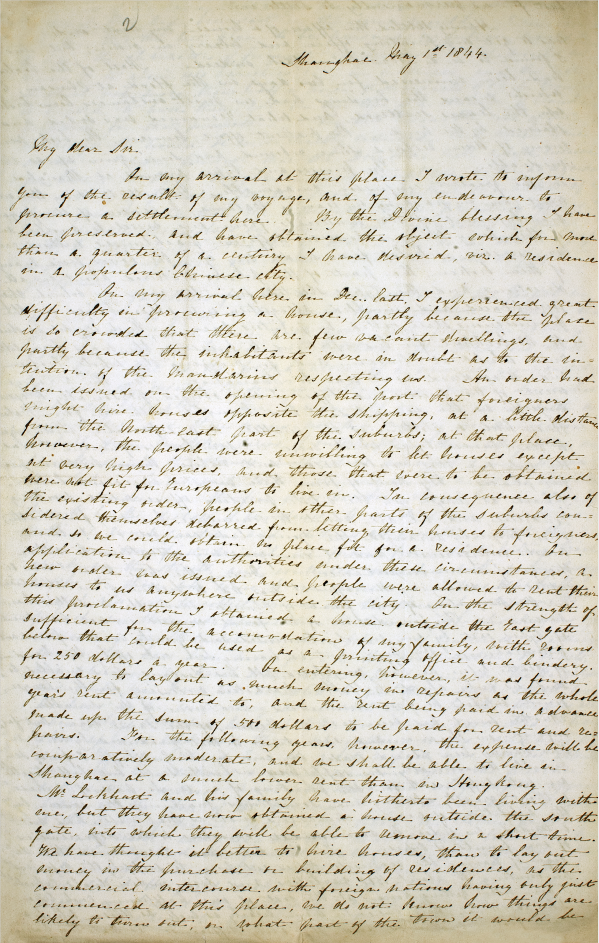 2
Shanghae. May 1st 1844.
My dear Sir.
On my arrival at this place I wrote to inform
you of the result of my voyage, and of my endeavour to
procure a settlement here. By the Divine blessing I have
been preserved, and have obtained the object which for more
than a quarter of a century I have desired, viz. a residence
in a populous Chinese city.
On my arrival here in Dec. last, I experienced great
difficulty in procuring a house, partly because the place
is so crowded that there are few vacant dwellings, and
partly because the inhabitants were in doubt as to the in-
tention of the Mandarins respecting us. An order had
been issued on the opening of the port that foreigners
might hire houses opposite the shipping, at a little distance
from the North East part of the suburbs; at that place,
however, the people were unwilling to let houses except
at very high prices, and those that were to be obtained
were not fit for Europeans to live in. In consequence also of
the existing order, people in other parts of the suburbs con-
sidered themselves debarred from letting their houses to foreigners,
and so we could obtain no place fit for a residence. On
application to the authorities under these circumstances, a
new order was issued and people were allowed to rent their
houses to us anywhere outside the city. On the strength of
this proclamation I obtained a house outside the East gate
sufficient for the accomodation of my family, with rooms
below that could be used as a printing office and bindery,
for 250 dollars a year. On entering, however, it was found
necessary to lay out as much money in repairs as the whole
years rent amounted to, and the rent being paid in advance
made up the sum of 500 dollars to be paid for rent and re-
pairs. For the following years, however, the expense will be
comparatively moderate, and we shall be able to live in
Shanghae at a much lower rent than in Hongkong.
Mr Lockhart and his family have hitherto been living with
me, but they have now obtained a house outside the south
gate, into which they will be able to remove in a short time.
We have thought it better to hire houses, than to lay out
money in the purchase or building of residences, as the
commercial intercourse with foreign nations having only just
commenced at this place, we do not know how things are
likely to turn out, or what part of the town it would be